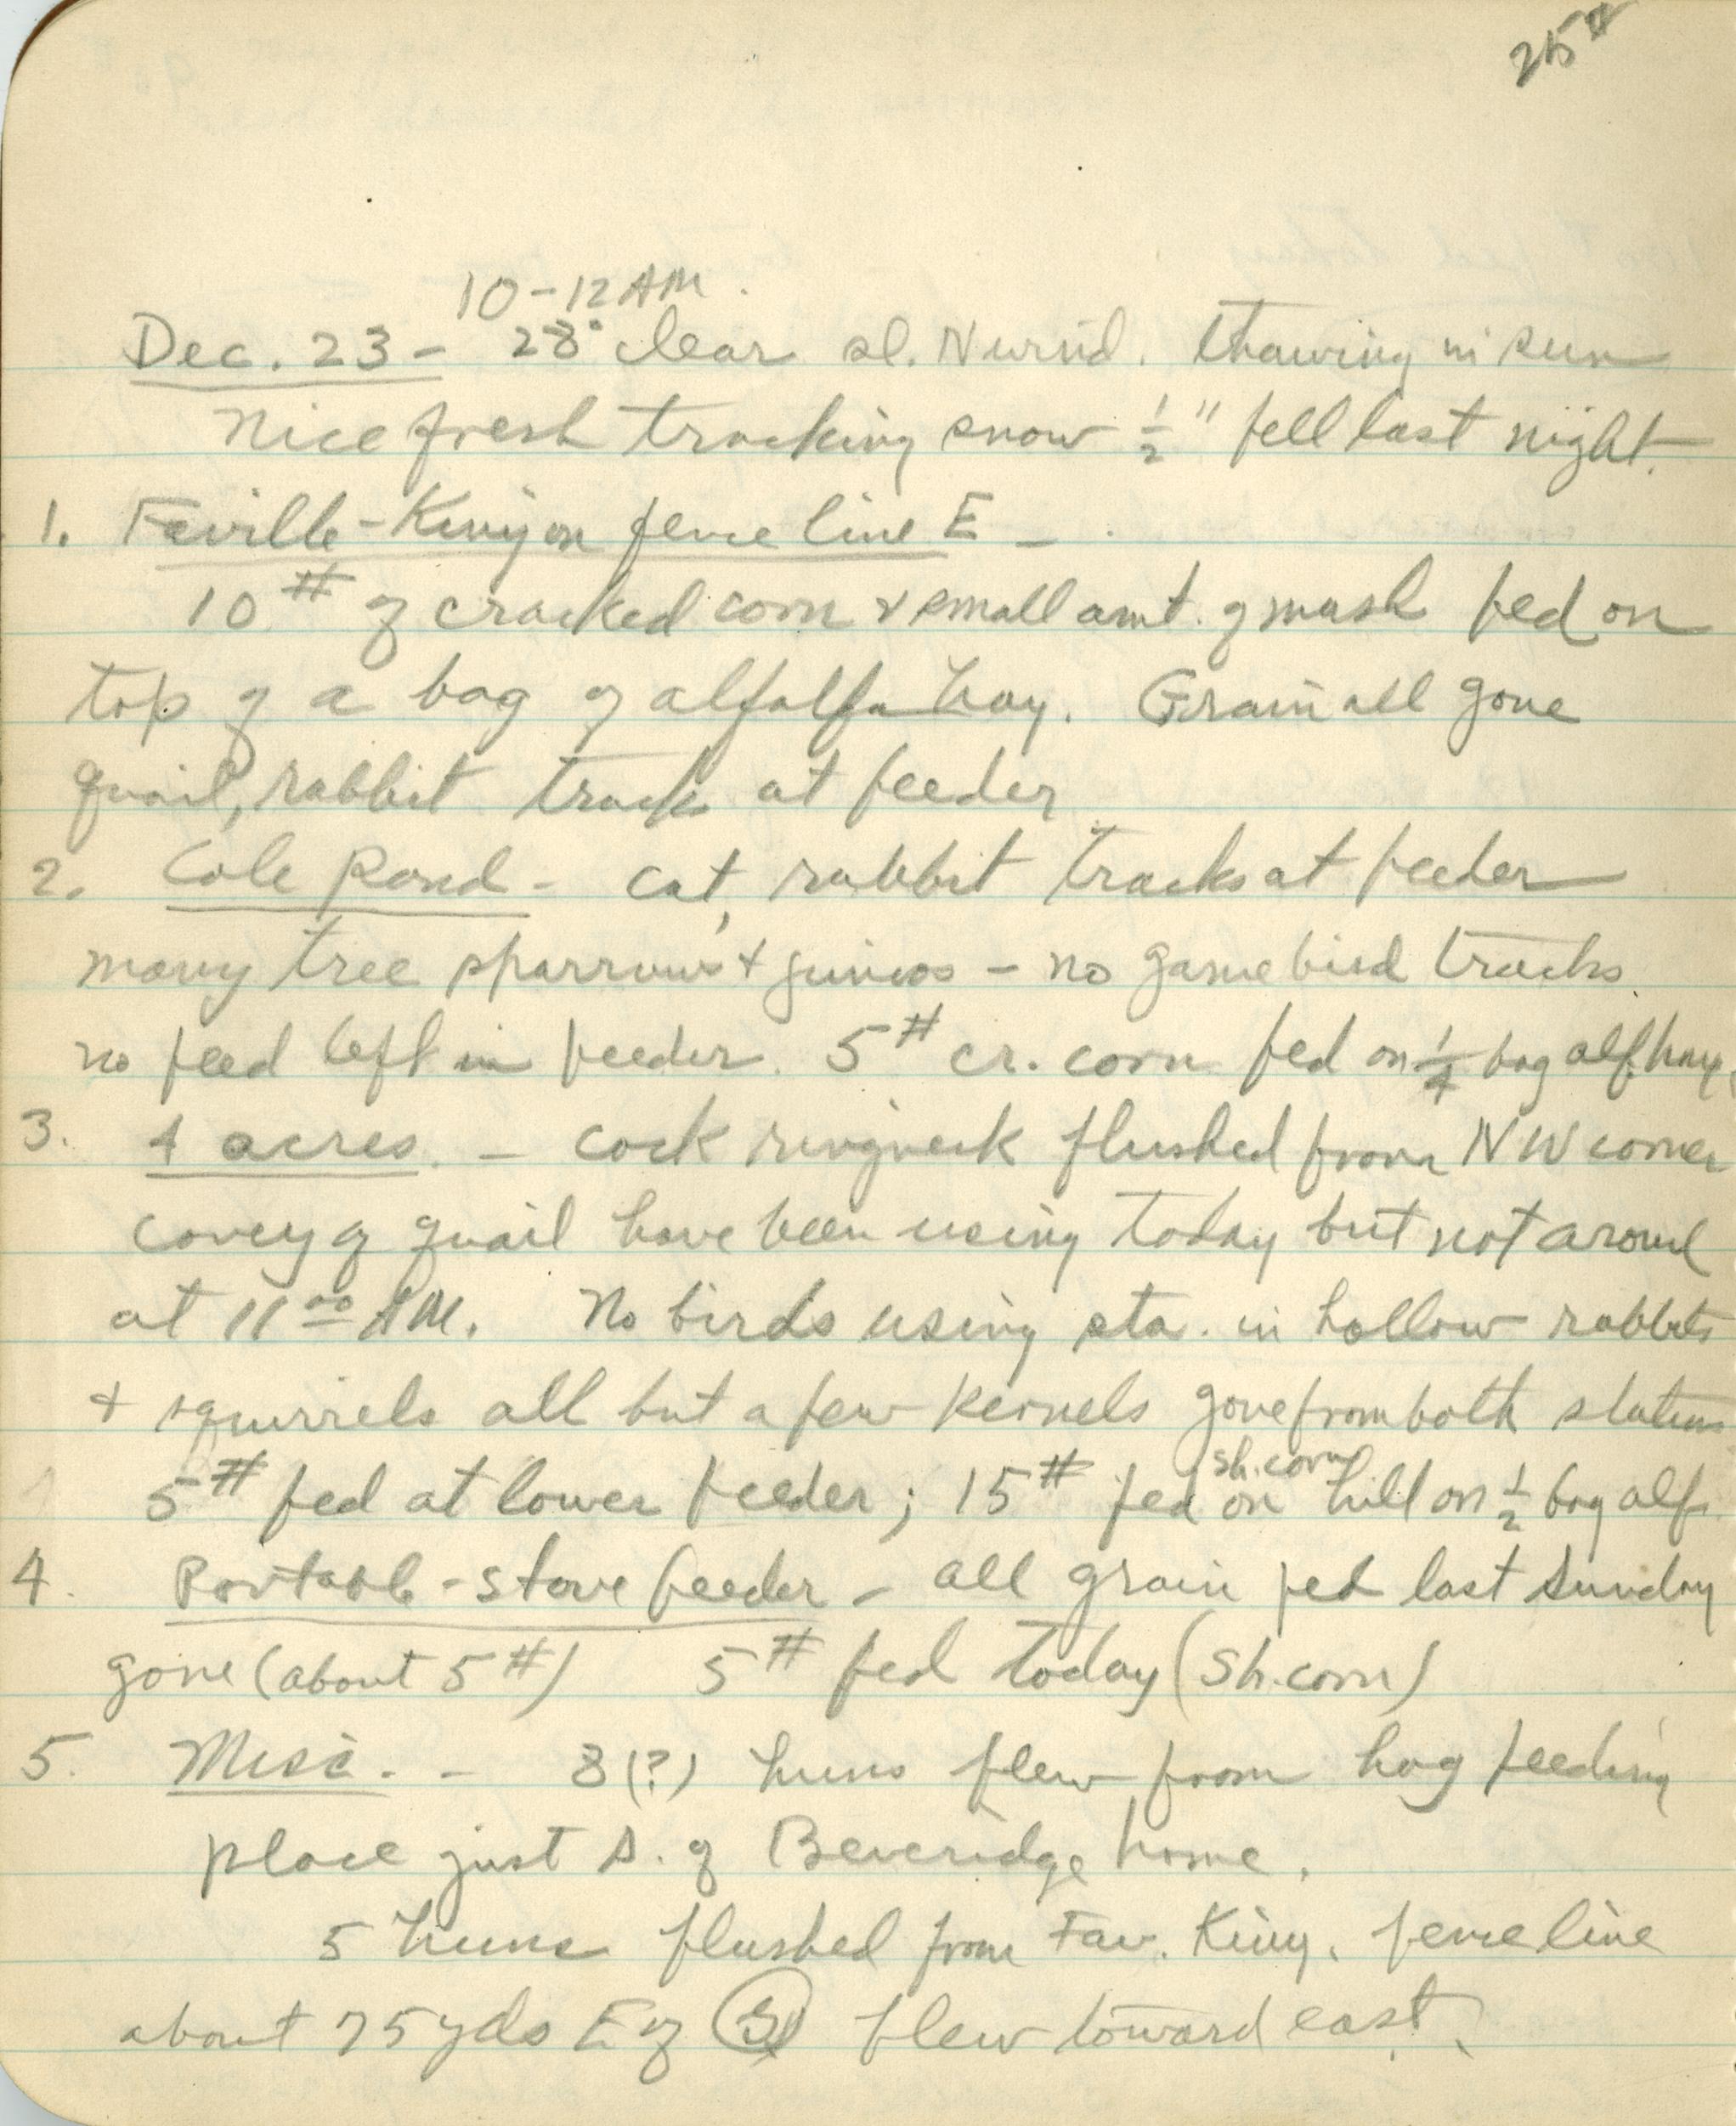 25#
10-12 AM.
Dec. 23 - 28° clear sl. N wind. thawing in sun
Nice fresh tracking snow 1/2" fell last night.
1. Faville-Kinyon fence line E -
10# of cracked corn & small amt. of mash fed on
top of a bag of alfalfa hay. Grain all gone
quail, rabbit tracks at feeder
2. Cole Pond - cat, rabbit tracks at feeder
many tree sparrows + juncos - no game bird tracks.
no feed left in feeder. 5# cr. corn fed on 1/4 bag alf hay.
3. 4 acres. - cock ringneck flushed from NW corner
covey of quail have been using today but not around
at 11 00 AM. No birds using sta. in hollow rabbits
+ squirrels all but a few kernels gone from both stations
sh. corn
5# fed at lower feeder; 15# fed on hill on 1/2 bag alf.
4. Portable-stove feeder - all grain fed last Sunday
gone (about 5#) 5# fed today (sh. corn)
5. Misc. - 8(?) huns flew from hog feeding
place just S. of Beveridge home.
5 huns flushed from Fav. Kiny. fence line
about 75 yds E of flew toward east.